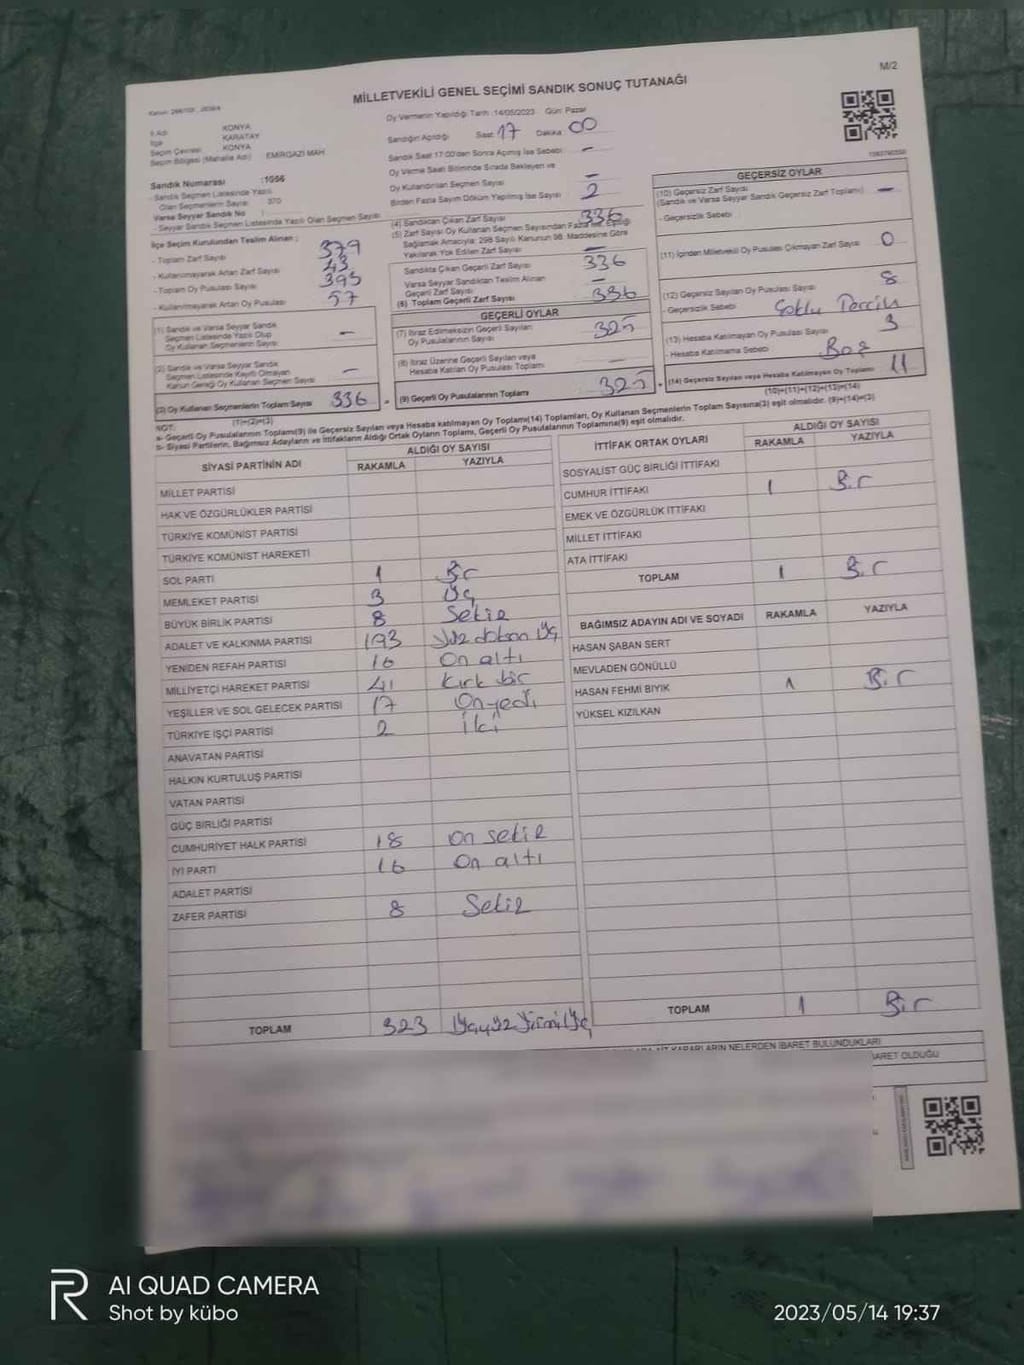 MİLLETVEKİLİ GENEL SEÇİMİ SANDIK SONUÇ TUTANAĞI
M/2
Oy Vermenin Yapıldığı Tarih :14/05/2023 Gün: Pazar
Sandığın Açıldığı Saat 17 Dakika 00
Sandık Saat 17:00'den Sonra Açılmış İse Sebebi -
Oy Verme Saati Bitiminde Sırada Bekleyen ve
Oy Kullandırılan Seçmen Sayısı -
Birden Fazla Sayım Döküm Yapılmış İse Sayısı 2
İl Adı KONYA
İlçe KARATAY
Seçim Çevresi KONYA
Seçim Bölgesi (Mahalle Adı) EMİRGAZİ MAH
Sandık Numarası :1056
- Sandık Seçmen Listesinde Yazılı
Olan Seçmenlerin Sayısı 370
Varsa Seyyar Sandık No
- Seyyar Sandık Seçmen Listesinde Yazılı Olan Seçmen Sayısı
İlçe Seçim Kurulundan Teslim Alınan ;
- Toplam Zarf Sayısı 379
- Kullanılmayarak Artan Zarf Sayısı 43
- Toplam Oy Pusulası Sayısı 393
- Kullanılmayarak Artan Oy Pusulası 57
(1) Sandık ve Varsa Seyyar Sandık
Seçmen Listesinde Yazılı Olup
Oy Kullanan Seçmenlerin Sayısı -
(2) Sandık ve Varsa Seyyar Sandık
Seçmen Listesinde Kayıtlı Olmayan
Kanun Gereği Oy Kullanan Seçmen Sayısı -
(3) Oy Kullanan Seçmenlerin Toplam Sayısı 336
(1)+(2)=(3)
(4) Sandıktan Çıkan Zarf Sayısı 336
(5) Zarf Sayısı Oy Kullanan Seçmen Sayısından Fazla İse, Eşitliği
Sağlamak Amacıyla; 298 Sayılı Kanunun 98. Maddesine Göre
Yakılarak Yok Edilen Zarf Sayısı -
Sandıkta Çıkan Geçerli Zarf Sayısı 336
Varsa Seyyar Sandıktan Teslim Alınan
Geçerli Zarf Sayısı -
(6) Toplam Geçerli Zarf Sayısı 336
GEÇERLİ OYLAR
(7) İtiraz Edilmeksizin Geçerli Sayılan
Oy Pusulalarının Sayısı 325
(8) İtiraz Üzerine Geçerli Sayılan veya
Hesaba Katılan Oy Pusulası Toplamı -
(9) Geçerli Oy Pusulalarının Toplamı 325
GEÇERSİZ OYLAR
(10) Geçersiz Zarf Sayısı
(Sandık ve Varsa Seyyar Sandık Geçersiz Zarf Toplamı) -
- Geçersizlik Sebebi
(11) İçinden Milletvekili Oy Pusulası Çıkmayan Zarf Sayısı 0
(12) Geçersiz Sayılan Oy Pusulası Sayısı 8
- Geçersizlik Sebebi Çoklu Tercih
(13) Hesaba Katılmayan Oy Pusulası Sayısı 3
- Hesaba Katılmama Sebebi Boş
(14) Geçersiz Sayılan veya Hesaba Katılmayan Oy Toplamı 11
(10)+(11)+(12)+(13)=(14)
NOT:
a- Geçerli Oy Pusulalarının Toplamı(9) ile Geçersiz Sayılan veya Hesaba katılmayan Oy Toplamı(14) Toplamları, Oy Kullanan Seçmenlerin Toplam Sayısına(3) eşit olmalıdır. (9)+(14)=(3)
b- Siyasi Partilerin, Bağımsız Adayların ve İttifakların Aldığı Ortak Oyların Toplamı, Geçerli Oy Pusulalarının Toplamına(9) eşit olmalıdır.
SİYASİ PARTİNİN ADI ALDIĞI OY SAYISI
RAKAMLA YAZIYLA
MİLLET PARTİSİ
HAK VE ÖZGÜRLÜKLER PARTİSİ
TÜRKİYE KOMÜNİST PARTİSİ
TÜRKİYE KOMÜNİST HAREKETİ
SOL PARTİ 1 Bir
MEMLEKET PARTİSİ 3 Üç
BÜYÜK BİRLİK PARTİSİ 8 Sekiz
ADALET VE KALKINMA PARTİSİ 193 Yüz doksan üç
YENİDEN REFAH PARTİSİ 16 On altı
MİLLİYETÇİ HAREKET PARTİSİ 41 Kırk bir
YEŞİLLER VE SOL GELECEK PARTİSİ 17 On yedi
TÜRKİYE İŞÇİ PARTİSİ 2 İki
ANAVATAN PARTİSİ
HALKIN KURTULUŞ PARTİSİ
VATAN PARTİSİ
GÜÇ BİRLİĞİ PARTİSİ
CUMHURİYET HALK PARTİSİ 18 On sekiz
İYİ PARTİ 16 On altı
ADALET PARTİSİ
ZAFER PARTİSİ 8 Sekiz
TOPLAM 323 Üçyüz Yirmi Üç
İTTİFAK ORTAK OYLARI ALDIĞI OY SAYISI
RAKAMLA YAZIYLA
SOSYALİST GÜÇ BİRLİĞİ İTTİFAKI
CUMHUR İTTİFAKI 1 Bir
EMEK VE ÖZGÜRLÜK İTTİFAKI
MİLLET İTTİFAKI
ATA İTTİFAKI
TOPLAM 1 Bir
BAĞIMSIZ ADAYIN ADI VE SOYADI RAKAMLA YAZIYLA
HASAN ŞABAN SERT
MEVLADEN GÖNÜLLÜ
HASAN FEHMİ BIYIK 1 Bir
YÜKSEL KIZILKAN
TOPLAM 1 Bir
KARARLARIN NELERDEN İBARET BULUNDUKLARI
İBARET OLDUĞU
AI QUAD CAMERA
Shot by kübo
2023/05/14 19:37